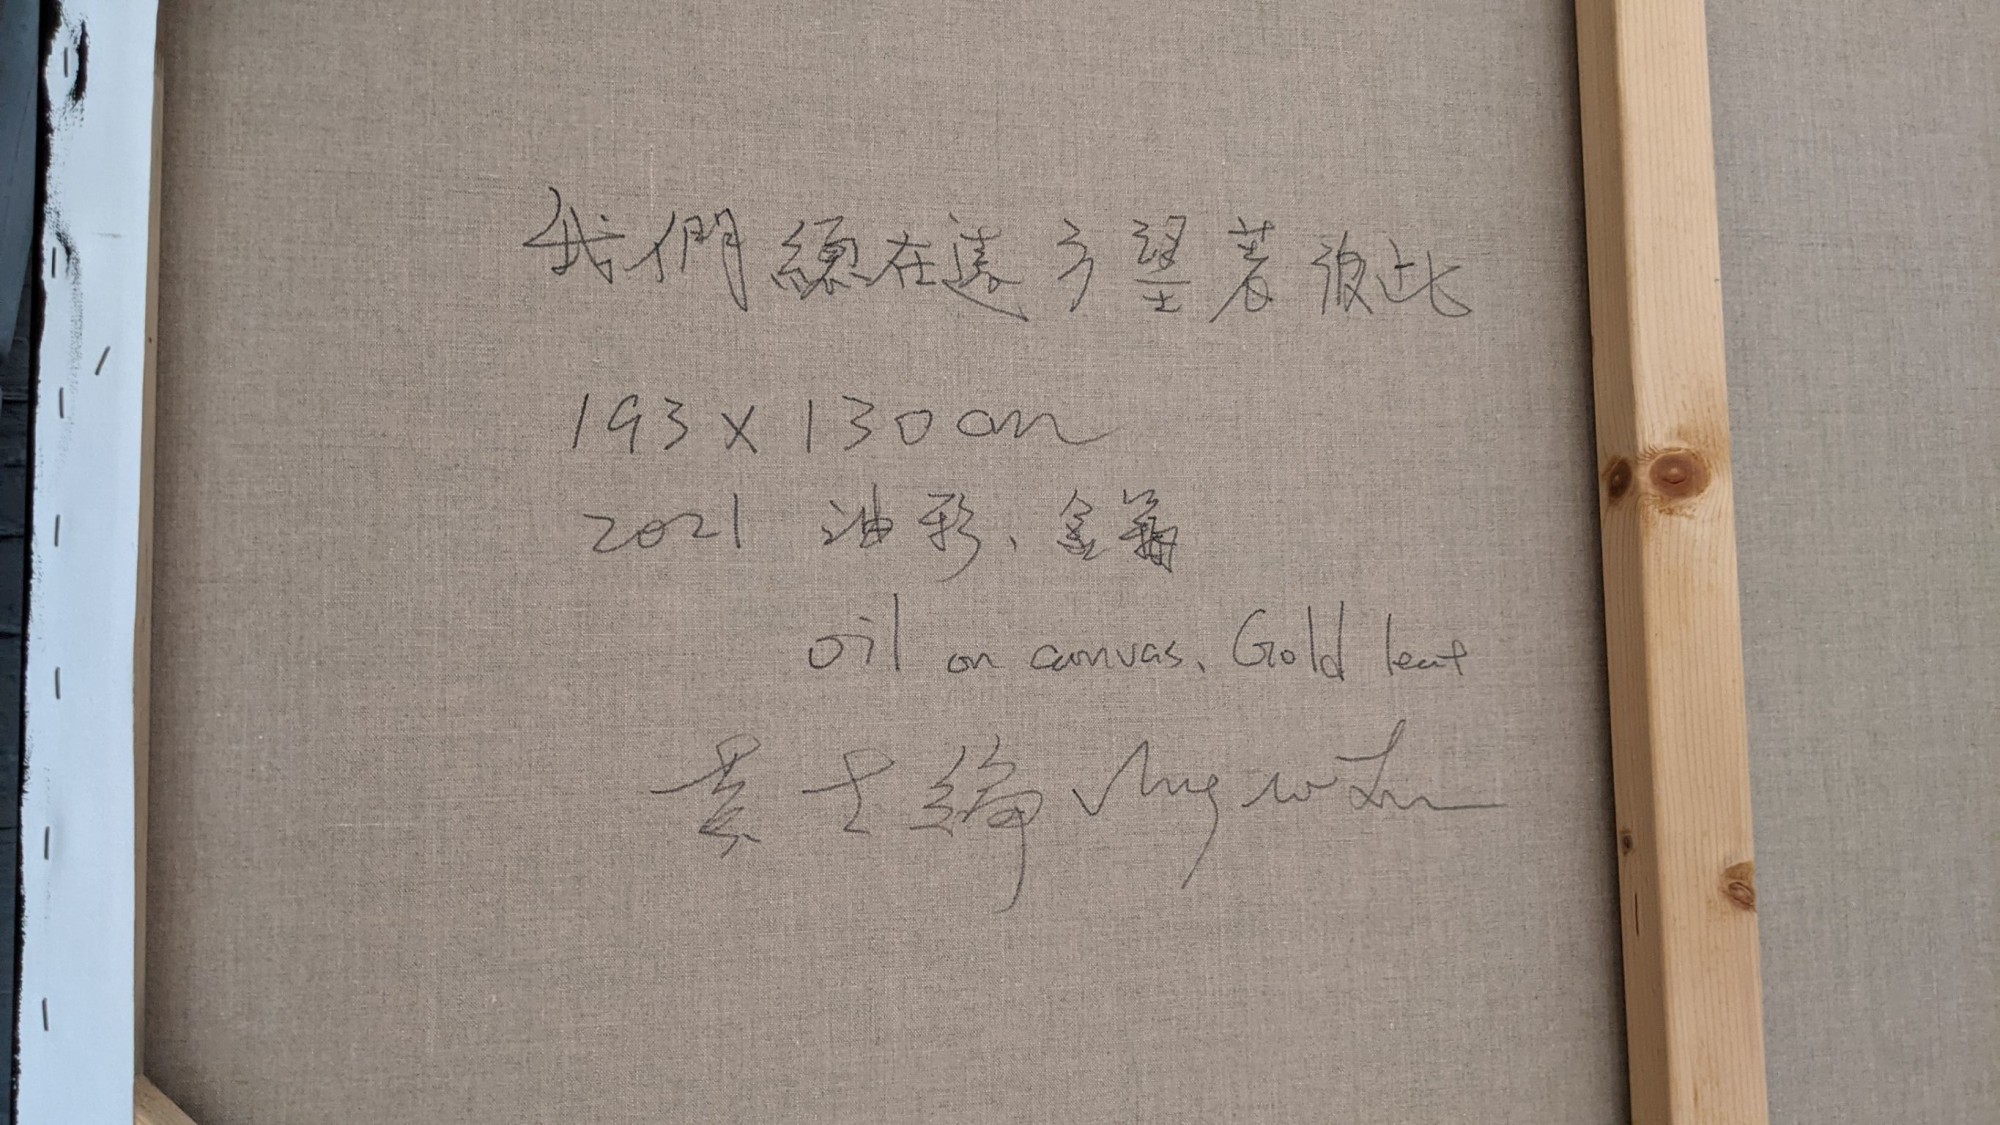 我們總在遠方望著彼此
193 x 130 cm
2021 油彩、金箔
oil on canvas、Gold leaf
黃士綸